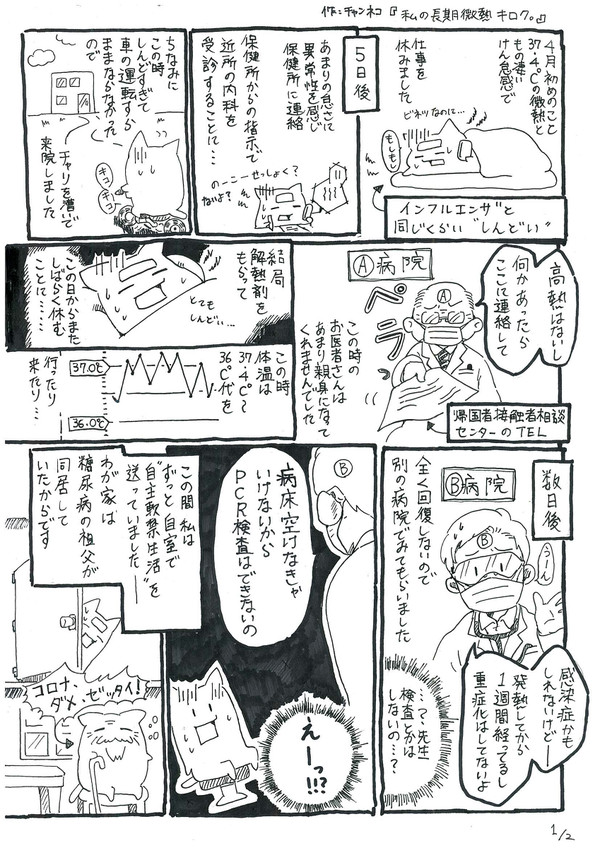 作:チャンネコ『私の長期微熱キロク。』
4月初めのこと
37.4℃の微熱と
もの凄い
けん怠感で
仕事を
休みました
ビネツなのに…
もしもし
インフルエンザと
同じくらい"しんどい"
5日後
あまりの怠さに
異常性を感じ
保健所に連絡
保健所からの指示で
近所の内科を
受診することに…
のーこーせっしょく?
ないよ?
ちなみに
この時
しんどすぎて
車の運転すら
ままならなかった
ので
チャリを漕いで
来院しました
キコ
キコ
高熱はないし
何かあったら
ここに連絡して
Ⓐ病院
A
ペラ
帰国者接触者相談
センターのTEL
この時の
お医者さんは
あまり親身になって
くれませんでした
結局
解熱剤を
もらって
とても
しんどい…
この日からまた
しばらく休む
ことに……
この時
体温は
37.4℃~
36℃代を
37.0℃
36.0℃
行ったり
来たり…
数日後
Ⓑ病院
B
うーん
全く回復しないので
別の病院でみてもらいました
感染症かも
しれないけどー
発熱してから
1週間経ってるし
重症化はしてないよ
…?先生
検査とかは
しないの…?
B
病床空けなきゃ
いけないから
PCR検査はできないの
えーっ!!?
この間私は
ずっと自室で
"自主軟禁生活"を
送っていました―
わが家は
糖尿病の祖父が
同居して
いたからです
コロナ、
ダメ、ゼッタイ!
1/2